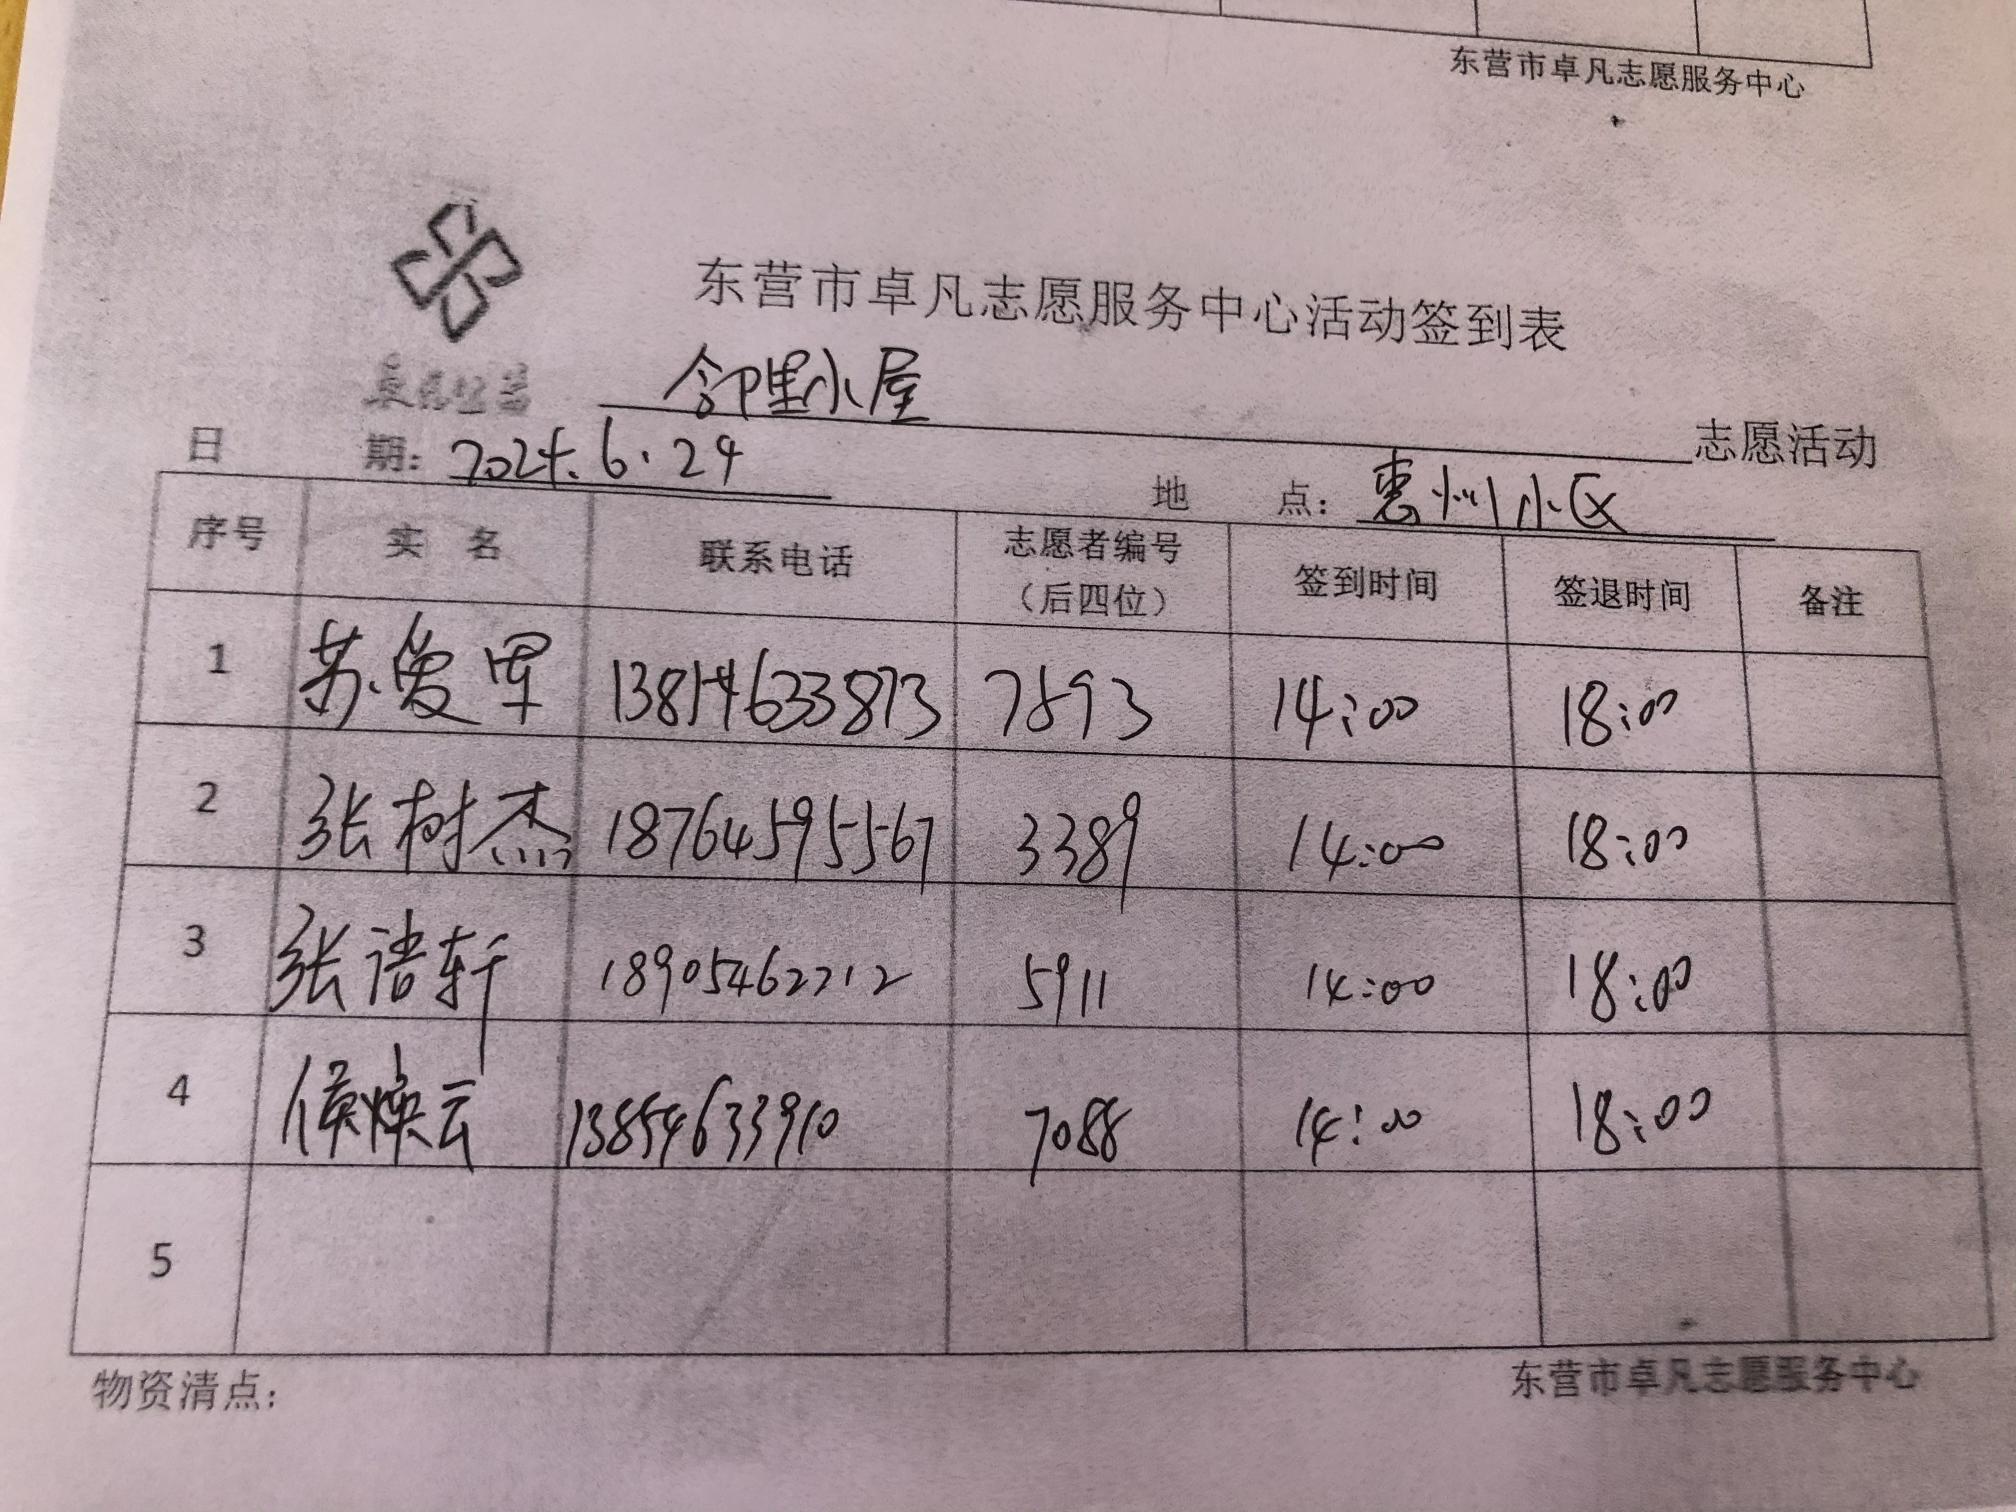 东营市卓凡志愿服务中心
东营市卓凡志愿服务中心活动签到表
邻里小屋 志愿活动
日 期: 2024.6.24 地 点: 惠州小区
序号 实 名 联系电话 志愿者编号（后四位） 签到时间 签退时间 备注
1 苏爱军 13814633873 7593 14:00 18:00
2 张树杰 18764595567 3389 14:00 18:00
3 张语轩 18905462212 5911 14:00 18:00
4 侯焕云 13854633910 7088 14:00 18:00
5
物资清点: 东营市卓凡志愿服务中心